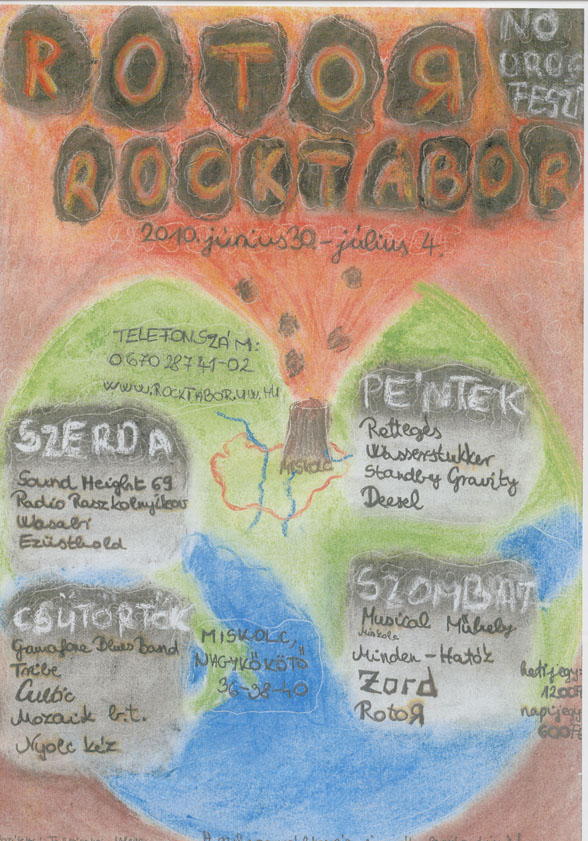 ROTOR
NO
UROS
FESZT
ROCKTÁBOR
2010. június 30. - július 4.
TELEFONSZÁM:
0670 287 41-02
WWW.ROCKTABOR.UW.HU
MISKOLC
SZERDA
Sound Height 69
Radio Raszkolnyikov
Wasabi
Ezüsthold
PÉNTEK
Rettegés
Wasserstukker
Standby Gravity
Deesel
CSÜTÖRTÖK
Gamafone Blues Band
Tribe
Cultic
Mozaik b.t.
Nyolc kéz
MISKOLC,
NAGYKÖKÖTŐ
36-38-40
SZOMBAT
Musical Műhely
Miskolc
Minden-Hatók
Zord
Rotor
hetijegy:
1200
napijegy
600Ft